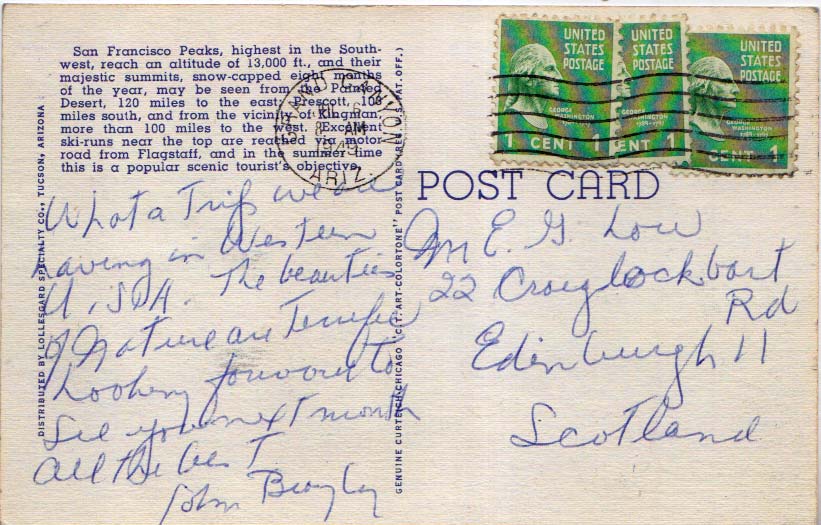 San Francisco Peaks, highest in the South-
west, reach an altitude of 13,000 ft., and their
majestic summits, snow-capped eight months
of the year, may be seen from the Painted
Desert, 120 miles to the east; Prescott, 108
miles south, and from the vicinity of Kingman,
more than 100 miles to the west. Excellent
ski-runs near the top are reached via motor
road from Flagstaff, and in the summer time
this is a popular scenic tourist's objective.
DISTRIBUTED BY LOLLESGARD SPECIALTY CO., TUCSON, ARIZONA
What a Trip we are
having in Western
U.S.A. The beauties
of Nature are Terrific
Looking forward to
See you next month
All the best
John
GENUINE CURTEICH-CHICAGO "C.T. ART-COLORTONE" POST CARD (REG. U.S. PAT. OFF.)
GRAND CANYON
6
8 AM
1949
ARIZ.
UNITED
STATES
POSTAGE
GEORGE
WASHINGTON
1 CENT 1
UNITED
STATES
POSTAGE
GEORGE
WASHINGTON
ENT 1
UNITED
STATES
POSTAGE
GEORGE
WASHINGTON
CENT 1
POST CARD
E. G. Low
22 Craiglockhart
Rd
Edinburgh 11
Scotland